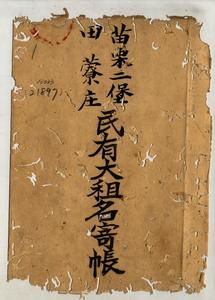 苗栗二堡
田藔庄
民有大租名寄帳